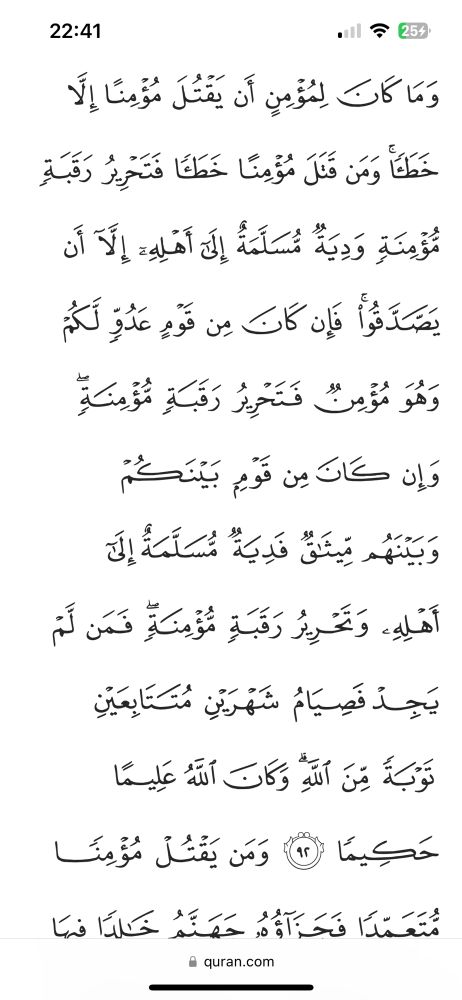 22:41
25
وَمَا كَانَ لِمُؤْمِنٍ أَن يَقْتُلَ مُؤْمِنًا إِلَّا
خَطَـًٔا ۚ وَمَن قَتَلَ مُؤْمِنًا خَطَـًٔا فَتَحْرِيرُ رَقَبَةٍ
مُّؤْمِنَةٍ وَدِيَةٌ مُّسَلَّمَةٌ إِلَىٰٓ أَهْلِهِۦٓ إِلَّآ أَن
يَصَّدَّقُوا۟ ۚ فَإِن كَانَ مِن قَوْمٍ عَدُوٍّ لَّكُمْ
وَهُوَ مُؤْمِنٌ فَتَحْرِيرُ رَقَبَةٍ مُّؤْمِنَةٍ ۖ
وَإِن كَانَ مِن قَوْمٍۭ بَيْنَكُمْ
وَبَيْنَهُم مِّيثَـٰقٌ فَدِيَةٌ مُّسَلَّمَةٌ إِلَىٰٓ
أَهْلِهِۦ وَتَحْرِيرُ رَقَبَةٍ مُّؤْمِنَةٍ ۖ فَمَن لَّمْ
يَجِدْ فَصِيَامُ شَهْرَيْنِ مُتَتَابِعَيْنِ
تَوْبَةً مِّنَ ٱللَّهِ ۗ وَكَانَ ٱللَّهُ عَلِيمًا
حَكِيمًا ٩٢ وَمَن يَقْتُلْ مُؤْمِنًا
مُّتَعَمِّدًا فَجَزَآؤُهُۥ جَهَنَّمُ خَـٰلِدًا فِيهَا
quran.com